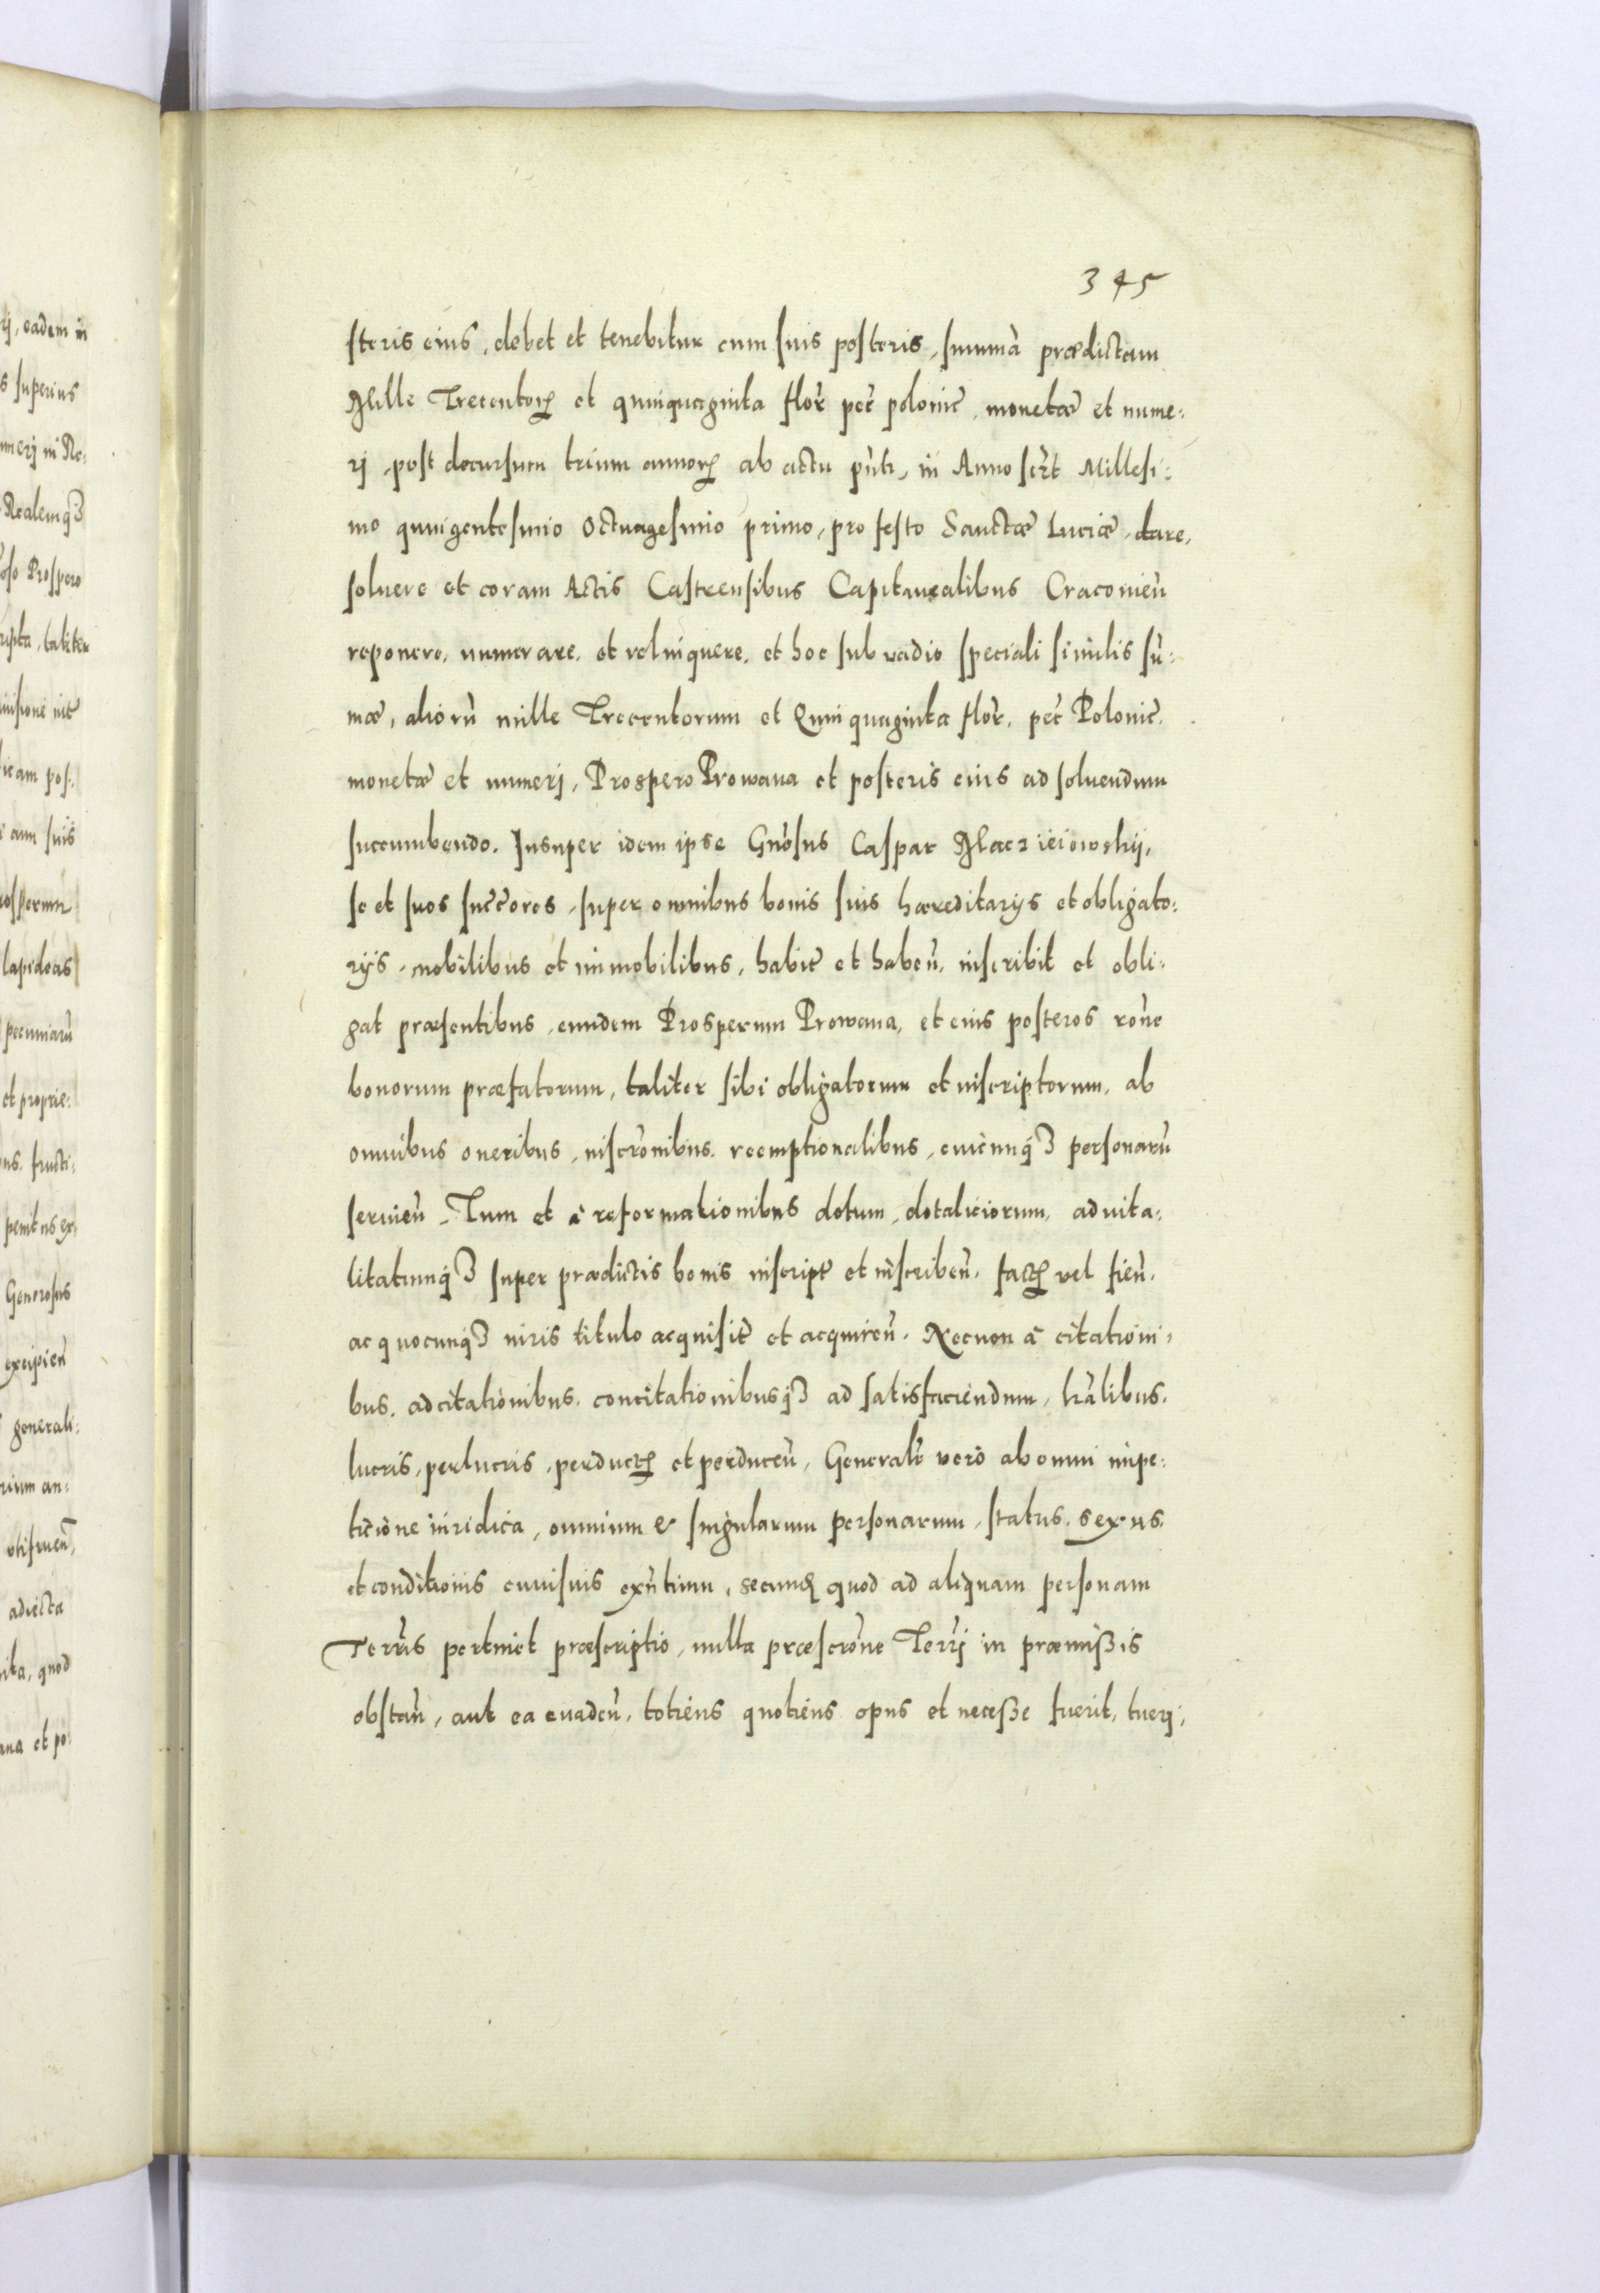 345
steris eius, debet et tenebitur cum suis posteris, sum̄ã prædictam
Mille Trecentoꝝ et quinquaginta flor̃ pec̃ polonic̃, monetæ et nume:
rj, post decursum trium annoꝝ ab actu pñti, in Anno scr̃t Millesi:
mo quingentesimo octuagesimo primo, pro festo Sanctæ Luciæ, dare,
soluere et coram Actis Castrensibus Capitanealibus Cracouien̄
reponere, numerare, et relinquere, et hoc sub vadio speciali similis sū:
mæ, aliorū mille Trecentorum et Quinquaginta flor̃. pec̃ Polonic̃.
monetæ et numerj, Prospero Prowana et posteris eius ad soluendum
succumbendo. Insuper idem ipse Gnõsus Caspar Macziéiowskij,
se et suos succ̃ores, super omnibus bonis suis hæreditarijs et obligato:
rijs, mobilibus et immobilibus, habit̃ et haben̄, inscribit et obli:
gat præsentibus, eundem Prosperum Prowana, et eius posteros rõne
bonorum præfatorum, taliter sibi obligatorum et inscriptorum, ab
omnibus oneribus, inscrõnibus, reemptionalibus, cuicunqꝫ personarū
seruien̄, Tum et à reformationibus dotum, dotaliciorum, aduita:
litatumqꝫ super prædictis bonis inscript̃ et inscriben̄. factꝝ vel fien̄.
ac quocunqꝫ iuris titulo acquisit̃ et acquiren̄. Necnon à citationi:
bus, adcitationibus, concitationibusqꝫ ad satisfaciendum, lr̃alibus,
lucris, perlucris, perductꝝ et perducen̄, Generalr̃ verò ab omni impe:
ticione iuridica, omnium & singularum personarum, status, sexus,
et conditionis cuiusuis exñtium, secundꝭ quod ad aliquam personam
Terr̃is pertinet præscriptio, nulla præscrõne Terr̃j in præmißis
obstan̄, aut ea euaden̄, totiens quotiens opus et neceße fuerit, tuerj,